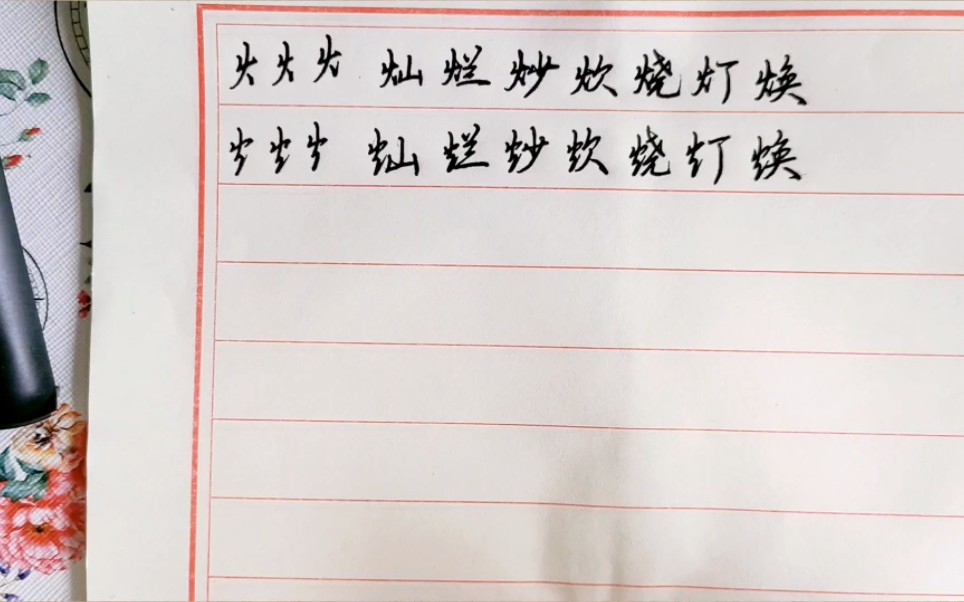 火火火 灿烂炒炊烧灯焕
火火火 灿烂炒炊烧灯焕